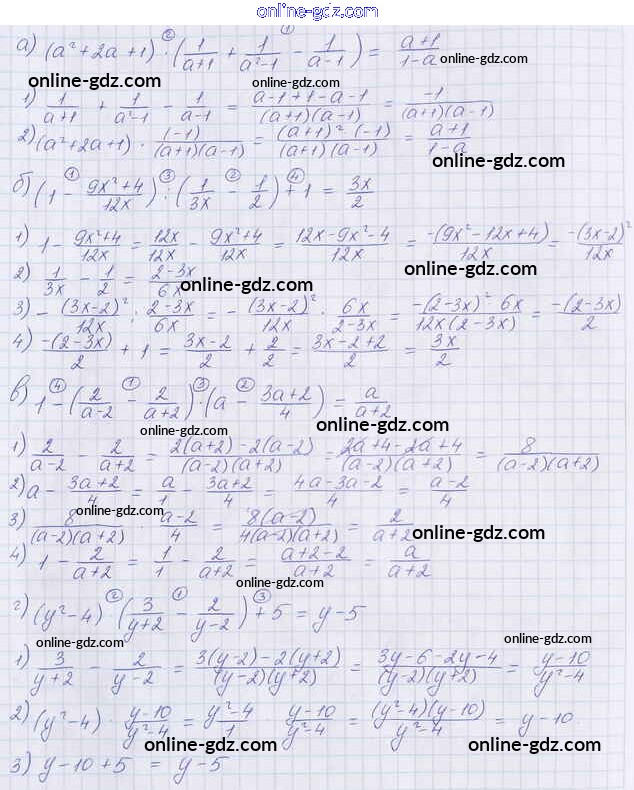 online-gdz.com
а) (a²+2a+1) ·② (1/(a+1) + 1/(a²-1) -① 1/(a-1)) = (a+1)/(1-a)
online-gdz.com online-gdz.com
1) 1/(a+1) + 1/(a²-1) - 1/(a-1) = (a-1+1-a-1)/((a+1)(a-1)) = -1/((a+1)(a-1))
2) (a²+2a+1) · (-1)/((a+1)(a-1)) = ((a+1)²(-1))/((a+1)(a-1)) = (a+1)/(1-a)
online-gdz.com
б) (1 -① (9x²+4)/12x) :③ (1/3x -② 1/2) +④ 1 = 3x/2
1) 1 - (9x²+4)/12x = 12x/12x - (9x²+4)/12x = (12x-9x²-4)/12x = -(9x²-12x+4)/12x = -(3x-2)²/12x
online-gdz.com
2) 1/3x - 1/2 = (2-3x)/6x
online-gdz.com
3) - (3x-2)²/12x : (2-3x)/6x = - (3x-2)²/12x · 6x/(2-3x) = (-(2-3x)² · 6x)/(12x(2-3x)) = -(2-3x)/2
4) -(2-3x)/2 + 1 = (3x-2)/2 + 2/2 = (3x-2+2)/2 = 3x/2
в) 1 -④ (2/(a-2) -① 2/(a+2)) ·③ (a -② (3a+2)/4) = a/(a+2)
online-gdz.com online-gdz.com
1) 2/(a-2) - 2/(a+2) = (2(a+2)-2(a-2))/((a-2)(a+2)) = (2a+4-2a+4)/((a-2)(a+2)) = 8/((a-2)(a+2))
2) a - (3a+2)/4 = a/1 - (3a+2)/4 = (4a-3a-2)/4 = (a-2)/4
online-gdz.com
3) 8/((a-2)(a+2)) · (a-2)/4 = 8(a-2)/(4(a-2)(a+2)) = 2/(a+2)
online-gdz.com
4) 1 - 2/(a+2) = 1/1 - 2/(a+2) = (a+2-2)/(a+2) = a/(a+2)
online-gdz.com
г) (y²-4) ② (3/(y+2) -① 2/(y-2)) +③ 5 = y-5
online-gdz.com online-gdz.com
1) 3/(y+2) - 2/(y-2) = (3(y-2)-2(y+2))/((y-2)(y+2)) = (3y-6-2y-4)/((y-2)(y+2)) = (y-10)/(y²-4)
2) (y²-4) · (y-10)/(y²-4) = (y²-4)/1 · (y-10)/(y²-4) = ((y²-4)(y-10))/(y²-4) = y-10
online-gdz.com online-gdz.com
3) y-10+5 = y-5
online-gdz.com